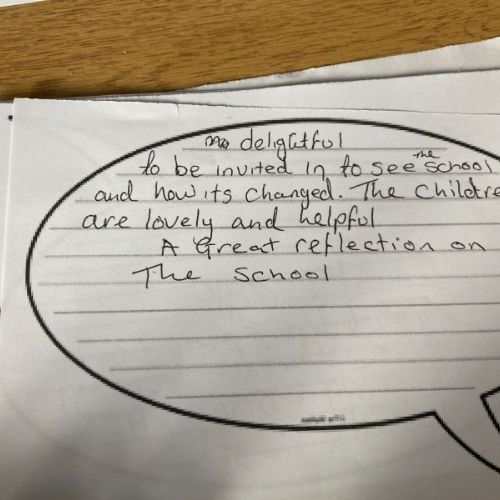 delightful
to be invited in to see the school
and how its changed. The childre
are lovely and helpful
A Great reflection on
The School